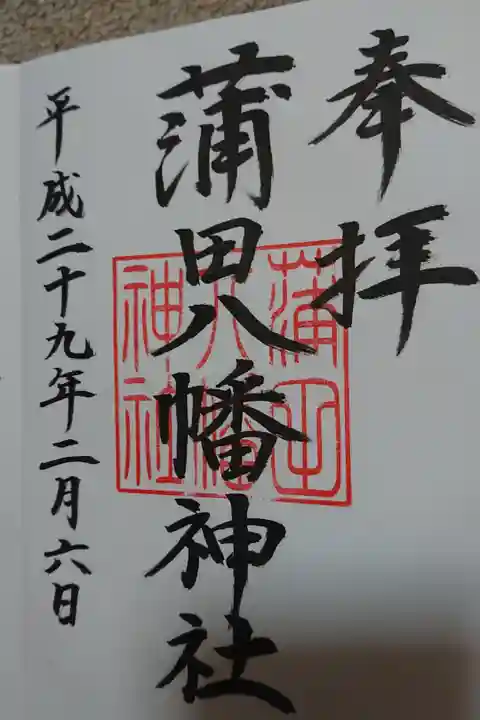 奉拝
蒲田八幡神社
平成二十九年二月六日
蒲田
八幡
神社